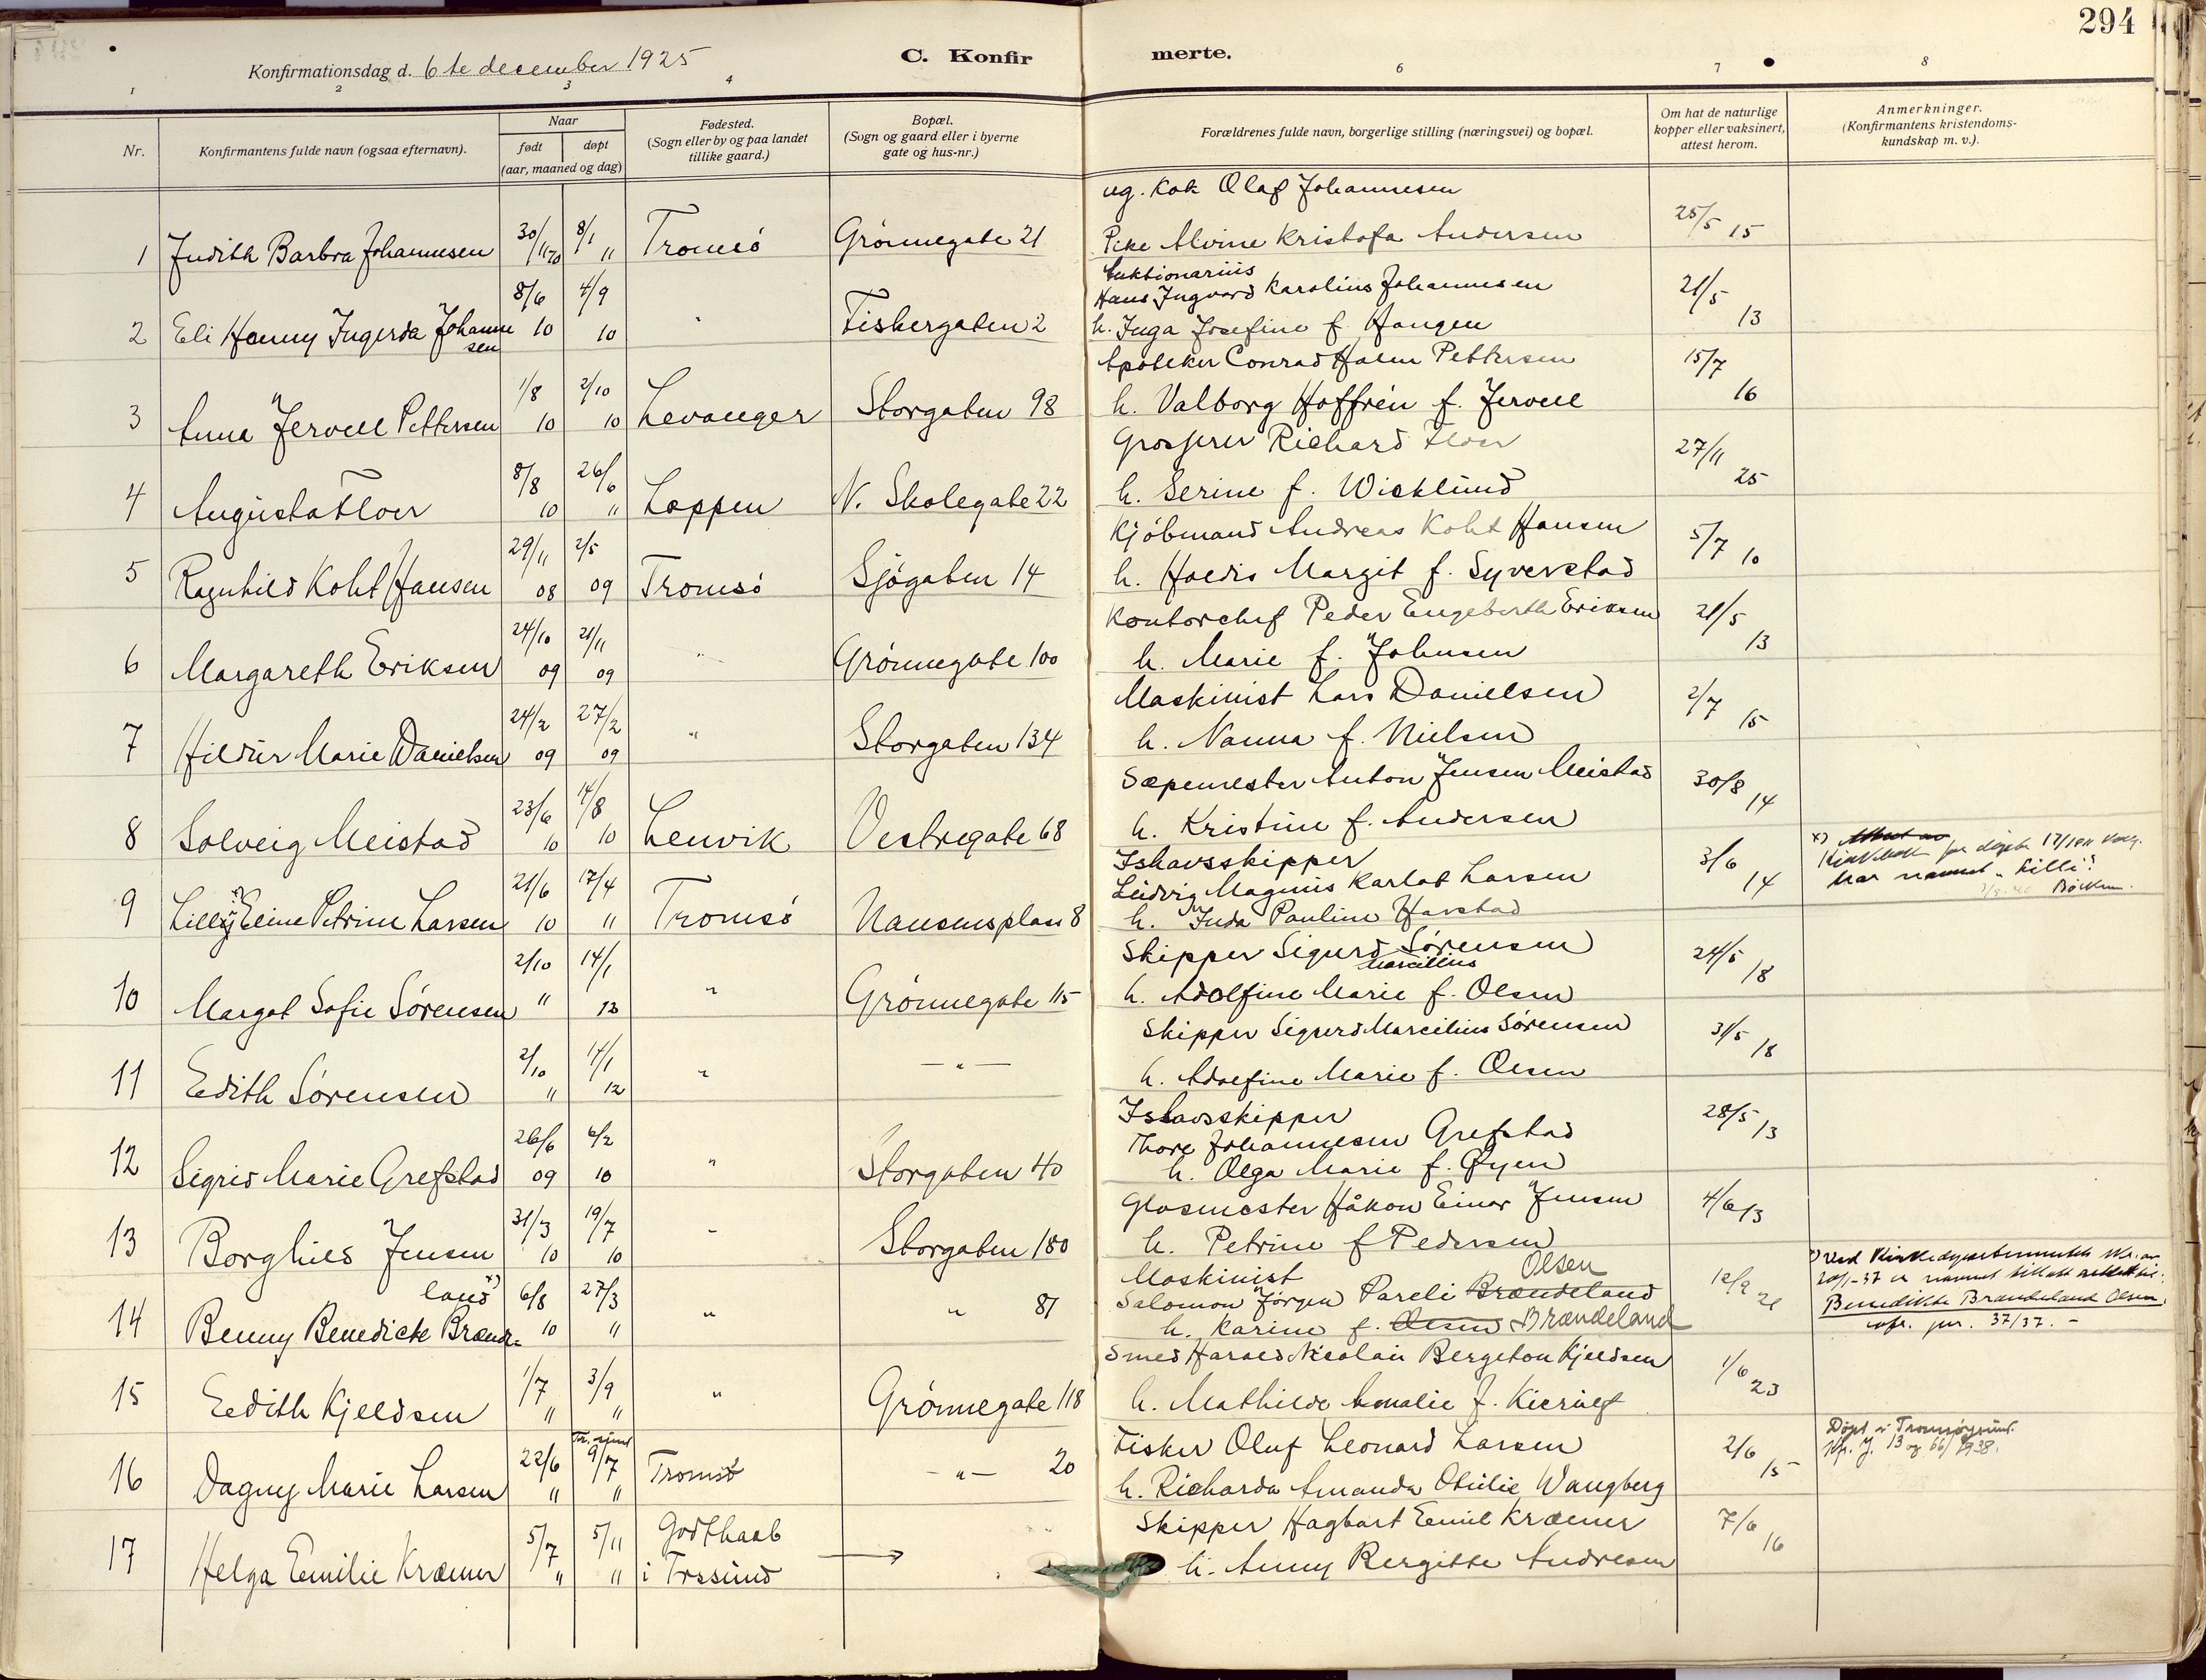 294
Konfirmationsdag d. 6te december 1925
C. Konfirmerte.
1 2 3 4 6 7 8
Nr.
Konfirmantens fulde navn (ogsaa efternavn).
Naar
født døpt
(aar, maaned og dag)
Fødested.
(Sogn eller by og paa landet
tillike gaard.)
Bopæl.
(Sogn og gaard eller i byerne
gate og hus-nr.)
Forældrenes fulde navn, borgerlige stilling (næringsvei) og bopæl.
Om hat de naturlige
kopper eller vaksinert,
attest herom.
Anmerkninger.
(Konfirmantens kristendoms-
kundskap m. v.).
ug. Kok Olaf Johannesen
1 Judith Barbra Johannesen 30/11 10 8/1 11 Tromsö Grönnegate 21 Pike Alvine Kristofa Andersen 25/5 15
Auktionarius
Hans Ingvard Karolius Johannesen
2 Eli Hanny Ingerda Johannesen 8/6 10 4/9 10 " Fiskergaten 2 h. Inga Josefine f. Haugen 21/5 13
Apoteker Conrad Holm Pettersen
3 Anna Jervell Pettersen 1/8 10 2/10 10 Levanger Storgaten 98 h. Valborg Hoffrén f. Jervell 15/7 16
Grosserer Richard Floer
4 Augusta Floer 8/8 10 26/6 11 Loppen N. Skolegate 22 h. Serine f. Wicklund 27/11 25
Kjöbmand Andreas Koht Hansen
5 Ragnhild Koht Hansen 29/11 08 2/5 09 Tromsö Sjögaten 14 h. Hoedis Margit f. Syverstad 5/7 10
Kontorchef Peder Engeberth Eriksen
6 Margareth Eriksen 24/10 09 21/11 09 " Grönnegate 100 h. Marie f. Johnsen 21/5 13
Maskinist Lars Danielsen
7 Hildur Marie Danielsen 24/2 09 27/2 09 " Storgaten 134 h. Nanna f. Nielsen 2/7 15
Sæpemester Anton Jensen Meistad
8 Solveig Meistad 23/6 10 14/8 10 Lenvik Vestregate 68 h. Kristine f. Andersen 30/8 14
Ishavsskipper
Ludvig Magnus Karlot Larsen
9 Lilly x) Eline Petrine Larsen 21/6 10 17/4 11 Tromsö Nansensplass 8 h. Inda Pauline Havstad 3/6 14
har navnet "Lilli".
Skipper Sigurd Marcilius Sörensen
10 Margot Sofie Sörensen 2/10 " 14/1 12 " Grönnegate 115 h. Adolfine Marie f. Olsen 24/5 18
Skipper Sigurd Marcilius Sörensen
11 Edith Sörensen 2/10 11 14/1 12 " — " — h. Adolfine Marie f. Olsen 31/5 18
Ishavsskipper
Thore Johannesen Grefstad
12 Sigrid Marie Grefstad 26/6 09 6/2 10 " Storgaten 40 h. Olga Marie f. Øyen 28/5 13
Glasmester Håkon Einar Jensen
13 Borghild Jensen 31/3 10 19/7 10 " Storgaten 180 h. Petrine f Pedersen 4/6 13
Maskinist Olsen
Salomon Jörgen Pareli Brændeland
14 Benny Benedicte Brændeland x) 6/8 10 27/3 11 " " 81 h. Karine f. Olsen Brændeland 12/2 21
x) Ved Kirkedepartementets skr. av
20/1-37 er navnet tillatt rettet til:
Benedikte Brændeland Olsen.
jnr. 37/37. -
Smed Harald Nicolai Bergeton Kjeldsen
15 Edith Kjeldsen 1/7 11 3/9 11 " Grönnegate 118 h. Mathilde Amalie f. Kierulf 1/6 23
Fisker Oluf Leonard Larsen
16 Dagny Marie Larsen 22/6 11 Tr. sund 9/7 11 Tromsö — " — 20 h. Richarda Amanda Otilie Wangberg 2/6 15
Döpt i Tromsøysund.
J. 13 og 66/1938.
Skipper Hagbart Emil Kræmer
17 Helga Emilie Kræmer 5/7 11 5/11 11 Godthaab i Trssund → h. Anny Bergitte Andresen 7/6 16